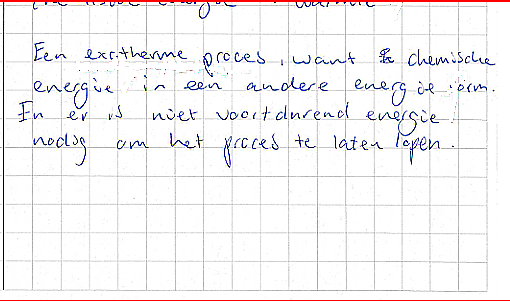 Een exotherme proces, want chemische
energie in een andere energie vorm.
En er is niet voortdurend energie
nodig om het proces te laten lopen.